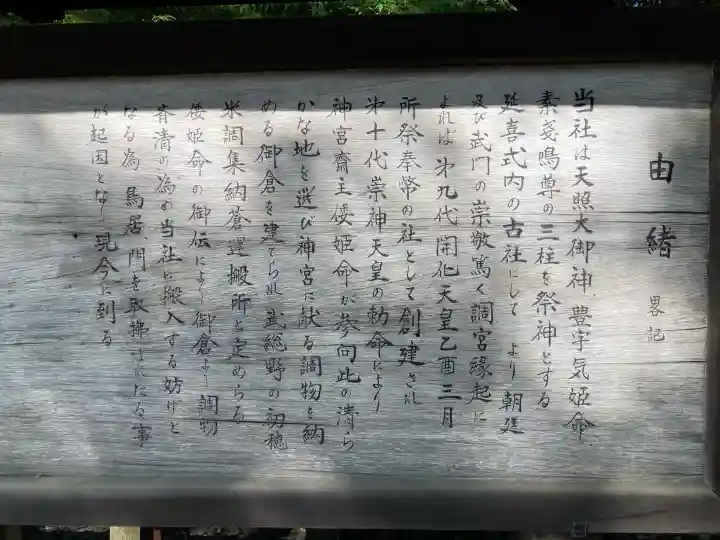 由緒 畧記
当社は天照大御神、豊宇気姫命、
素戔鳴尊の三柱を祭神とする
延喜式内の古社にして より朝廷
及び武門の崇敬篤く調宮縁起に
よれば 第九代開化天皇乙酉三月
所祭奉幣の社として創建され
第十代崇神天皇の勅命により
神宮齋主倭姫命が参向此の清ら
かな地を選び神宮に献る調物を納
める御倉を建てられ武総野の初穂
米調集納蒼運搬所と定めらる
倭姫命の御伝により御倉より調物
斉清の為め当社に搬入する妨げと
なる為、鳥居、門を取拂はれたる事
が起因となり現今に到る